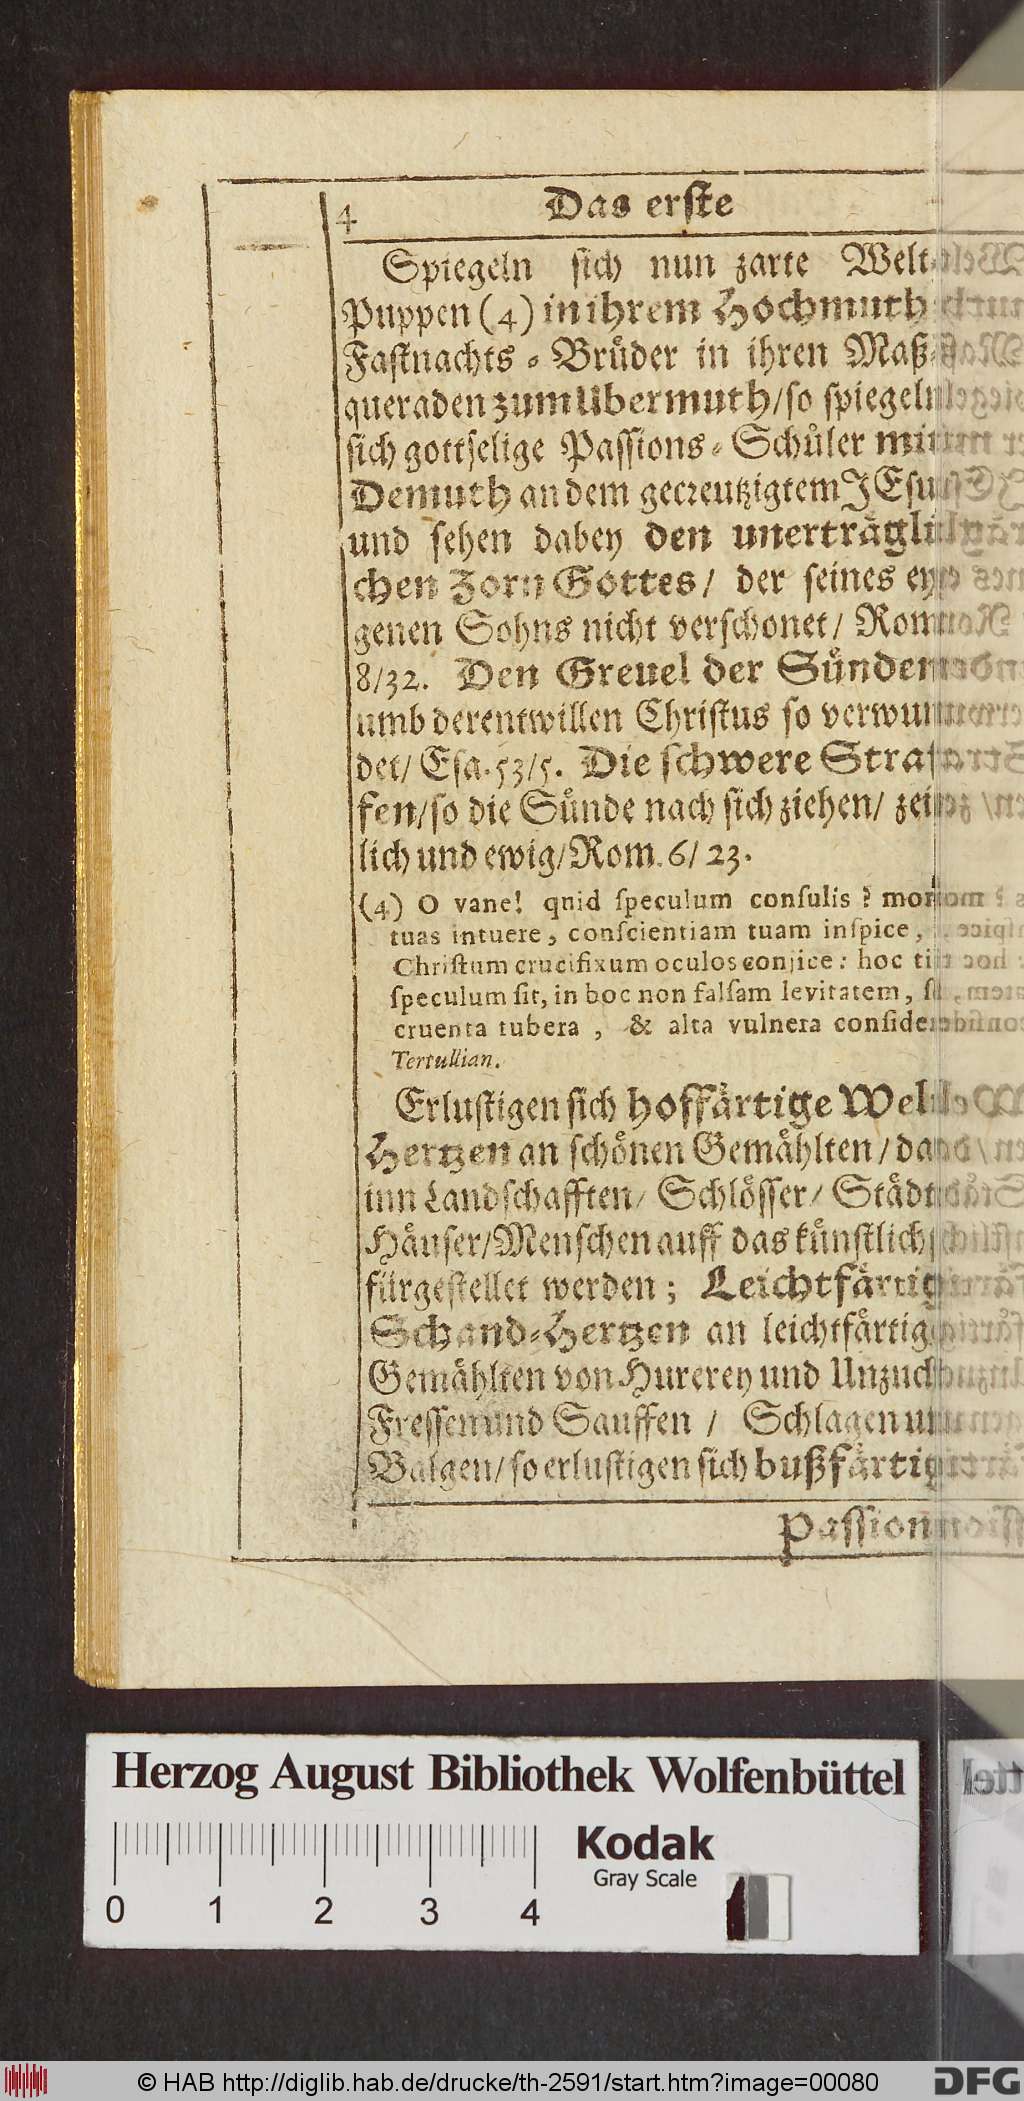 4 Das erste
Spiegeln sich nun zarte Welt-
Puppen (4) in ihrem Hochmuth
Fastnachts-Brůder in ihren Maß-
queraden zum Ubermuth/ so spiegeln
sich gottselige Passions-Schůler mit
Demuth an dem gecreutzigtem JEsu
und sehen dabey den unerträgli-
chen Zorn Gottes/ der seines ey-
genen Sohns nicht verschonet/ Rom.
8/32. Den Greuel der Sůnden
umb derentwillen Christus so verwun-
det/ Esa. 53/5. Die schwere Stra-
fen/ so die Sůnde nach sich ziehen/ zeit-
lich und ewig/ Rom. 6/23.
(4) O vane! quid speculum consulis?
tuas intuere, conscientiam tuam inspice,
Christum crucifixum oculos conjice: hoc tibi
speculum sit, in hoc non falsam levitatem,
cruenta tubera, & alta vulnera
Tertullian.
Erlustigen sich hoffärtige Welt-
Hertzen an schönen Gemählten/ da-
inn Landschafften/ Schlösser/ Städt
Häuser/ Menschen auff das kůnstlich
fürgestellet werden; Leichtfärtig
Schand-Hertzen an leichtfärtig
Gemählten von Hurerey und Unzucht
Fressen und Sauffen/ Schlagen und
Balgen/ so erlustigen sich bußfärtig
Passion
Herzog August Bibliothek Wolfenbüttel
Kodak
Gray Scale
0 1 2 3 4
© HAB http://diglib.hab.de/drucke/th-2591/start.htm?image=00080
DFG